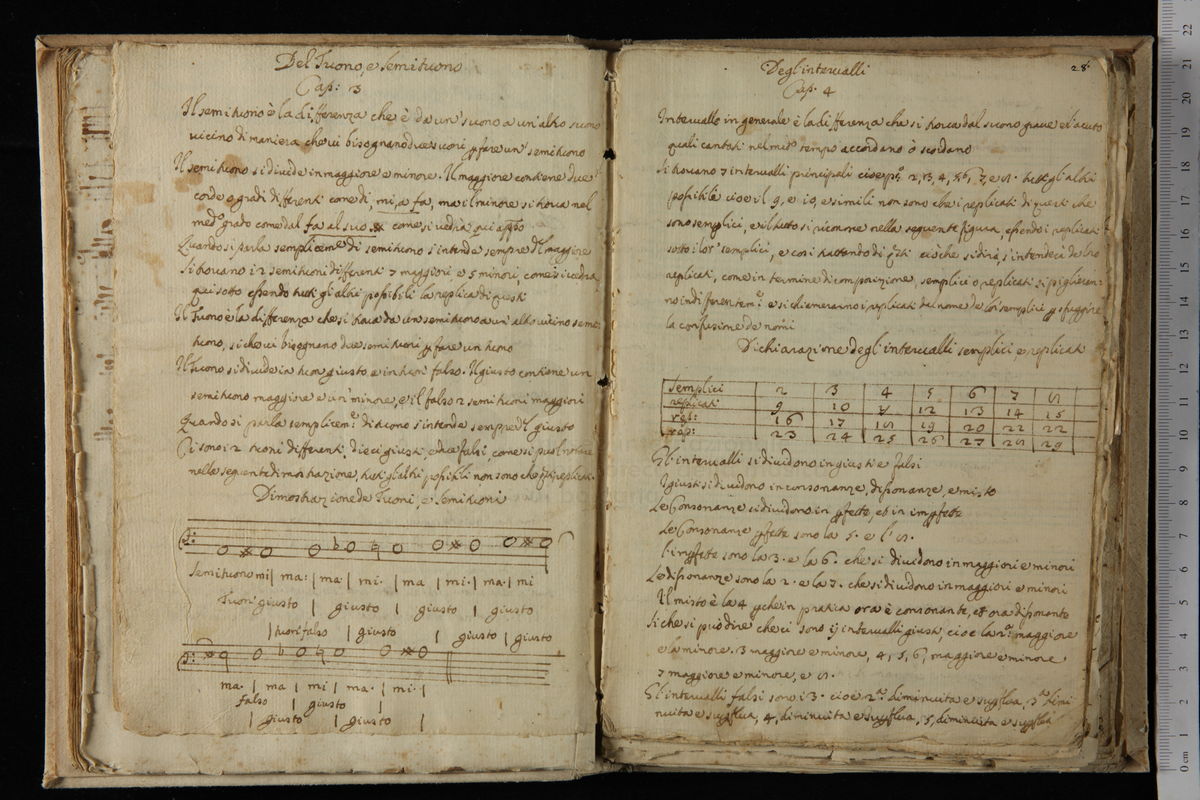 Del Tuono, e Semituono
Cap: 3
Il semituono è la differenza che è da un' suono a un' altro suono
vicino di maniera che vi bisognano due suoni p fare un' semituono
Il semituono si divide in maggiore e minore. Il maggiore contiene due
corde o gradi differenti come di, mi, a fa, ma il minore si trova nel
med:o grado come dal fa al suo ※ come si vedrà qui app:o
Quando si parla semplicem:te di semituono s'intende sempre il maggiore
Si trovano 12 semituoni differenti 7 maggiori e 5 minori, come si vedrà
qui sotto essendo tutti gli altri possibili la replica di questi
Il Tuono è la differenza che si trova da un semituono a un' altro vicino seme:
tuono, si che vi bisognano due semituoni p fare un tuono
Il Tuono si divide in tuon giusto, e in tuon falso. Il giusto contiene un
semituono maggiore e un' minore, e il falso 2 semituoni maggiori
Quando si parla semplicem:e di tuono s'intende sempre il giusto
Ci sono 12 tuoni differenti, dieci giusti, e due falsi, come si può notare
nella seguente dimostrazione, tutti gl'altri possibili non sono che repliche
Dimostrazione de Tuoni, e Semituoni
Semituono mi | ma: | ma: | mi: | ma | mi: | ma: | mi
Tuon' giusto | giusto | giusto | giusto
| tuon falso | giusto | giusto | giusto
ma: | ma | mi | ma: | mi: |
falso | giusto |
| giusto | giusto |
Degl'intervalli
28
Cap: 4
Intervallo in generale è la differenza che si trova dal suono grave et acuto
quali cantati nel med:o tempo accordano ò scordano
Si trovano 7 intervalli principali cioè p:o 2, 3, 4, 5, 6, 7, e 8. tutti gl'altri
possibili cioè il 9, e 10, e simili non sono che i replicati di questi che
sono semplici, e il tutto si ritrova nella seguente figura, essendo i replicati
sotto i lor' semplici, e così trattando di q:sti ciò che si dirà, s'intenderà de loro
replicati, come in termine di composizione, semplici o replicati si piglieran:
no indifferentem:e e si chiameranno i replicati dal nome de lor semplici p sfuggire
la confusione de nomi
Dichiarazione degl'intervalli semplici e replicati
Semplici 2 3 4 5 6 7 8
replicati 9 10 11 12 13 14 15
repl: 16 17 18 19 20 21 22
rep: 23 24 25 26 27 28 29
Gl'intervalli si dividono in giusti e falsi
I giusti si dividono in consonanze, dissonanze, e misto
Le Consonanze si dividono in pfette, et in impfette
Le Consonanze pfette sono la 5. e l' 8.
l'impfette sono la 3. e la 6. che si dividono in maggiori e minori
Le dissonanze sono la 2. e la 7. che si dividono in maggiori e minori
Il misto è la 4 p che in pratica ora è consonante, et ora dissonante
Si che si può dire che ci sono 11 intervalli giusti cioè la 2:a maggiore
e la minore. 3 maggiore e minore, 4, 5, 6, maggiore e minore
7 maggiore e minore, e 8.
Gl'intervalli falsi sono 13. cioè 2:a diminuita e supflua, 3:a dimi
nuita e supflua, 4, diminuita e supflua, 5, diminuita e supflua